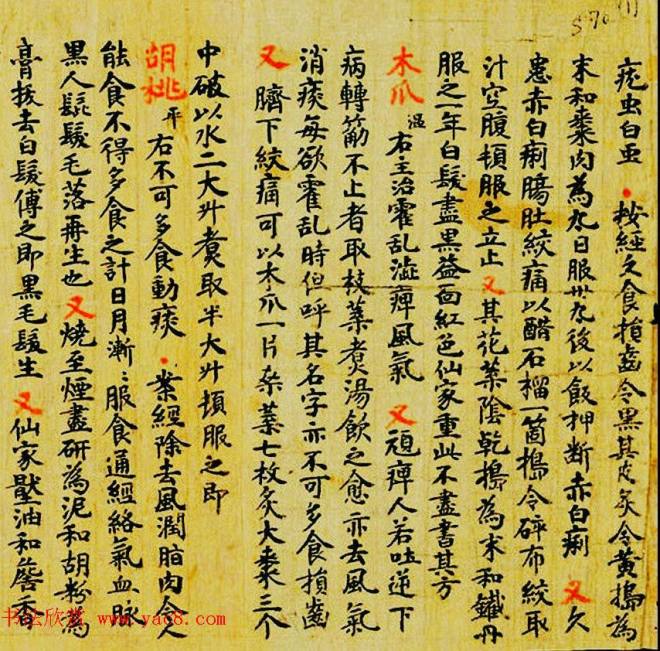 S 76 (1)
疣虫白虫 · 按經久食損齒令黑其皮炙令黃搗為
末和棗肉為丸日服卅丸後以飯押斷赤白痢 又久
患赤白痢腸肚絞痛以醋石榴一箇搗令碎布絞取
汁空腹頓服之立止 又其花葉陰乾搗為末和鐵丹
服之一年白髮盡黑益面紅色仙家重此不盡書其方
木瓜 温 右主治霍乱澁痺風氣 又頑痺人若吐逆下
病轉筋不止者取枝葉煮湯飲之愈亦去風氣
消痰每欲霍乱時但呼其名字亦不可多食損齒
又 臍下絞痛可以木瓜一片桒葉七枚炙大棗三个
中破以水二大升煮取半大升頓服之即
胡桃 平 右不可多食動痰 · 案經除去風潤脂肉令人
能食不得多食之計日月漸〻服食通經絡氣血脉
黑人髭髮毛落再生也 又燒至煙盡研為泥和胡粉為
膏拔去白髮傅之即黑毛髮生 又仙家壓油和詹香
书法欣赏 www.yac8.com